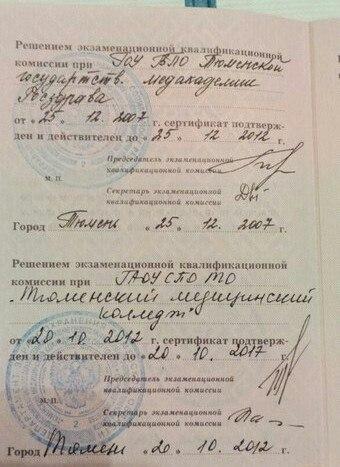 Решением экзаменационной квалификационной
комиссии при ГОУ ВПО Тюменской
государств. медакадемии
Росздрава
от « 25 » 12. 2007 г. сертификат подтверж-
ден и действителен до « 25 » 12 2012 г.
Председатель экзаменационной
квалификационной комиссии
м. п.
Секретарь экзаменационной
квалификационной комиссии
Город Тюмень « 25 » 12. 2007 г.
Решением экзаменационной квалификационной
комиссии при ГАОУ СПО ТО
„Тюменский медицинский
колледж"
от « 20 » 10. 2012 г. сертификат подтверж-
ден и действителен до « 20 » 10. 2017 г.
Председатель экзаменационной
квалификационной комиссии
м. п.
Секретарь экзаменационной
квалификационной комиссии
Город Тюмень « 20 » 10. 2012 г.